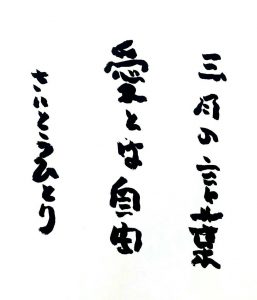 三月の言葉
愛とは自由
さいとうひとり